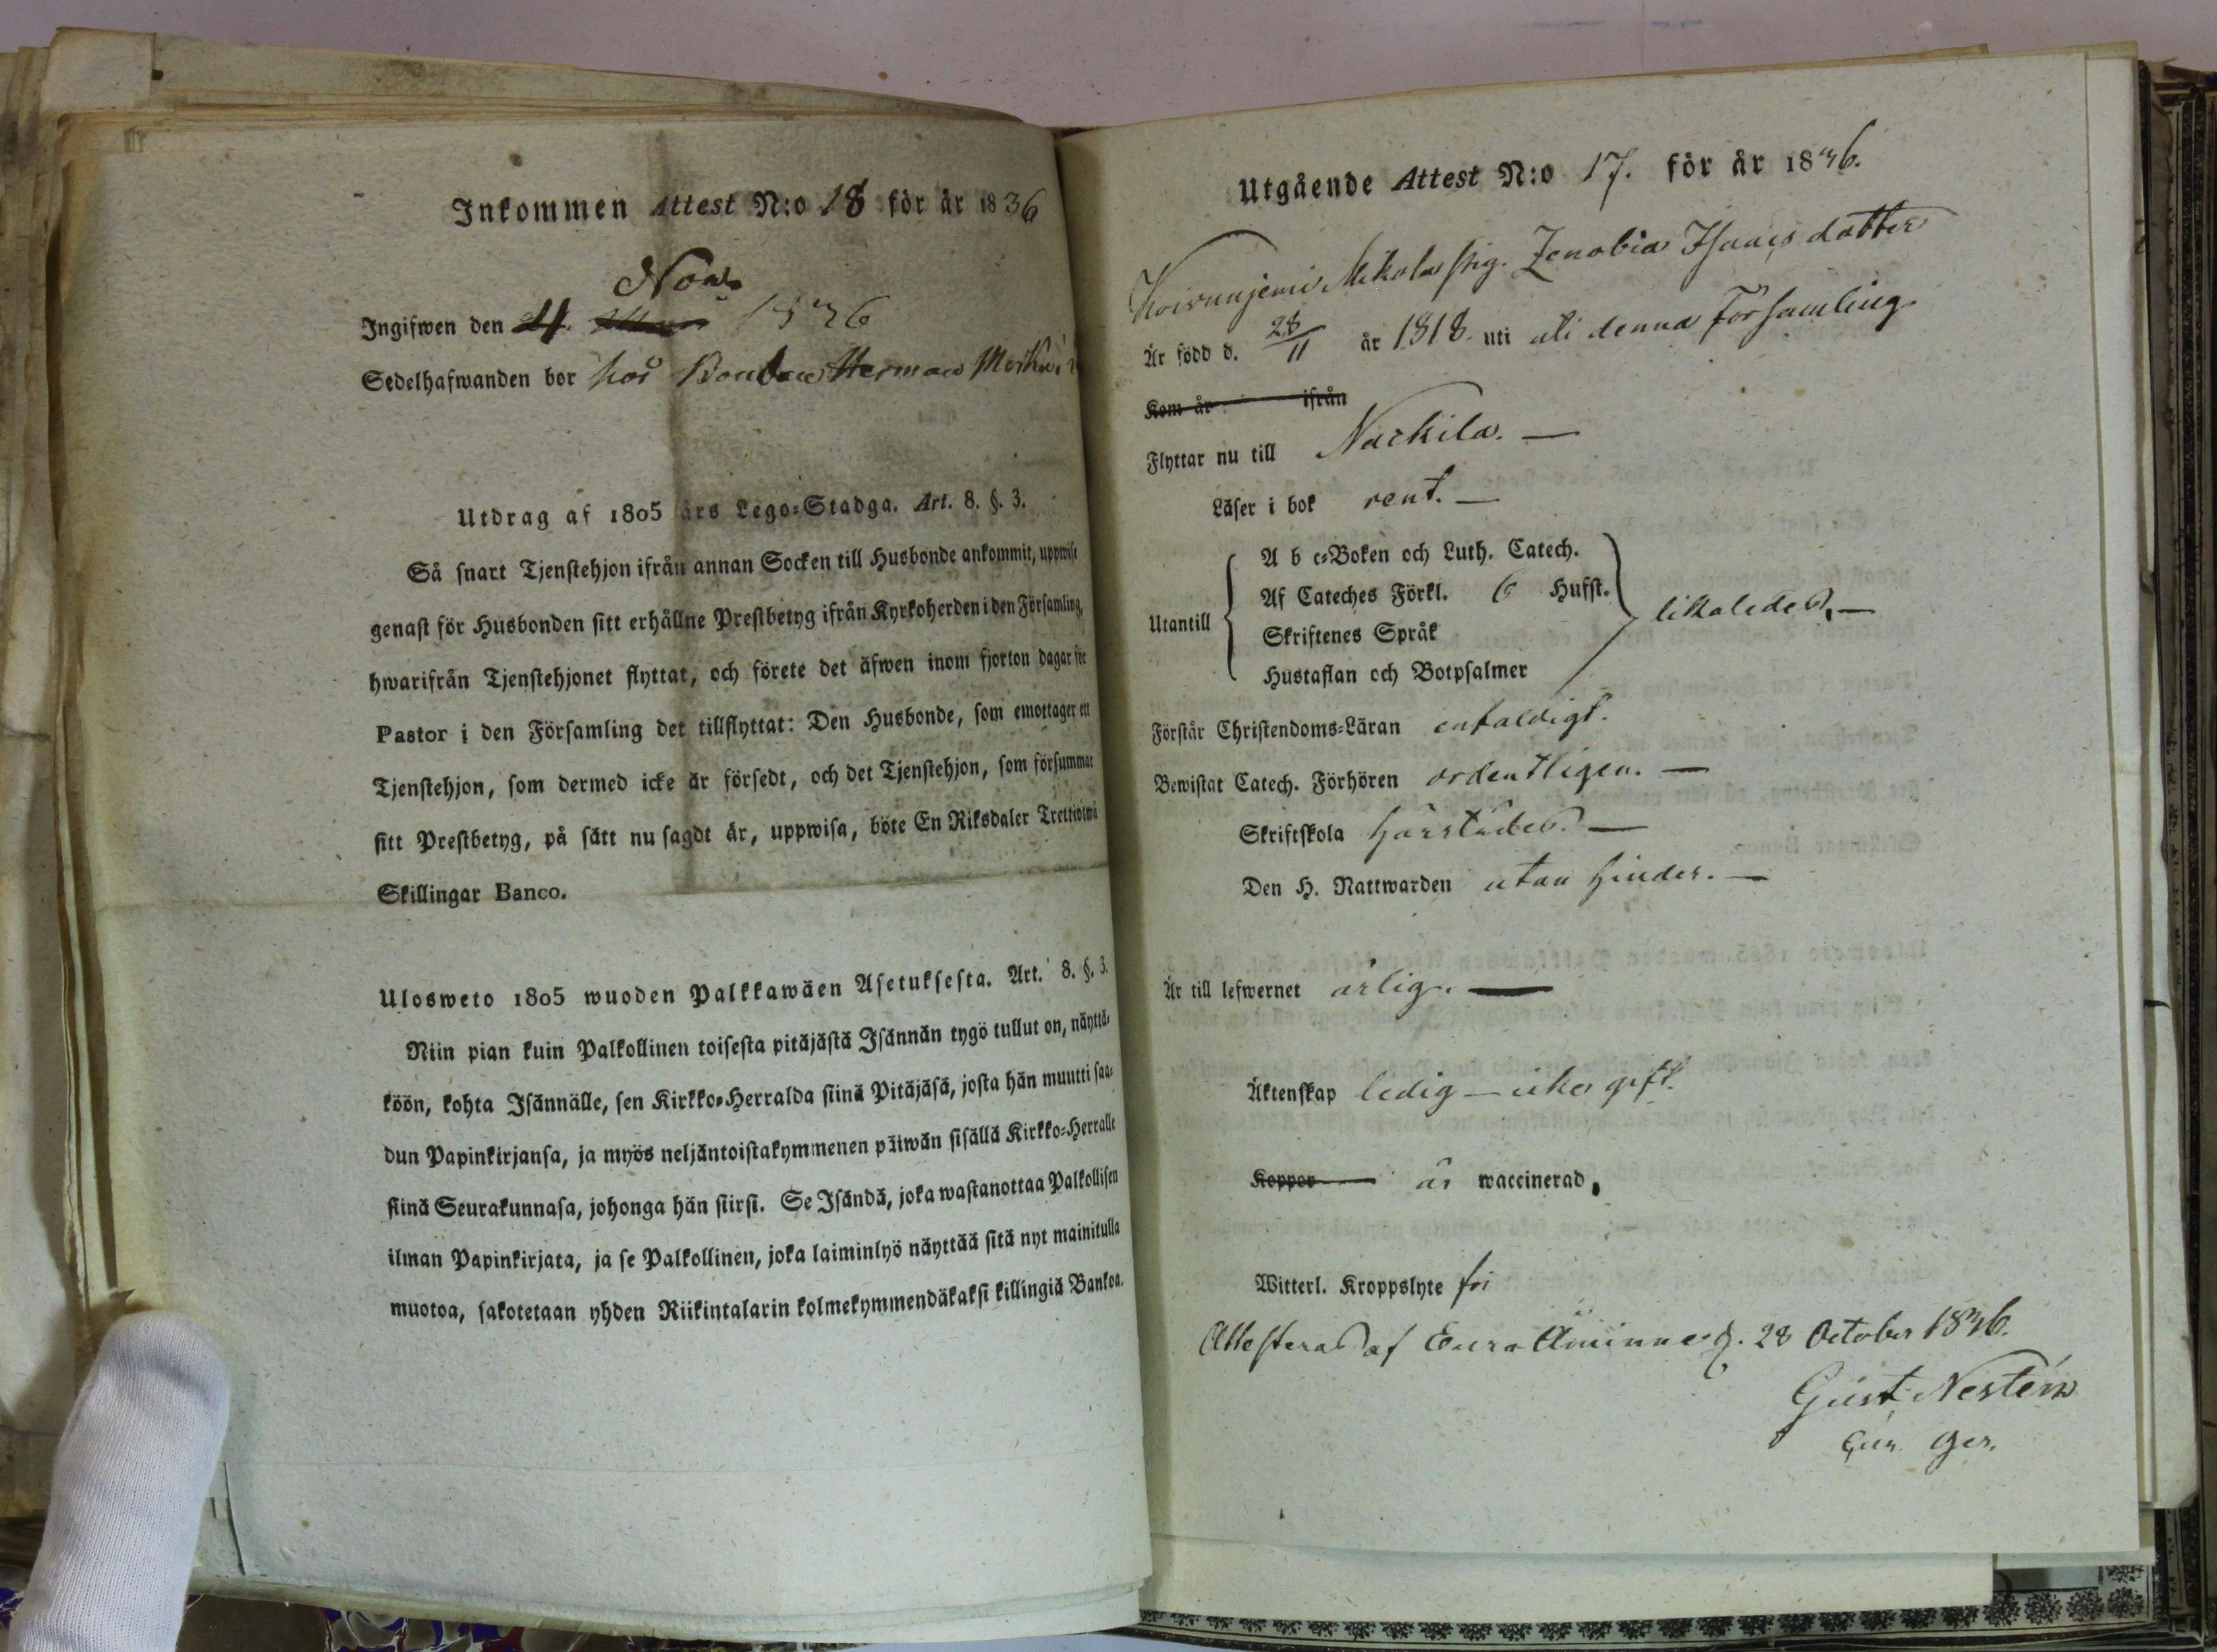 Inkommen Attest N:o 18 för år 1836
Now.
Ingifwen den 4. 1836
Sedelhafwanden bor hos Bonden Herman
Utdrag af 1805 års Lego-Stadga. Art. 8. §. 3.
Så snart Tjenstehjon ifrån annan Socken till Husbonde ankommit, uppwise
genast för Husbonden sitt erhållne Prestbetyg ifrån Kyrkoherden i den Församling,
hwarifrån Tjenstehjonet flyttat, och förete det äfwen inom fjorton dagar för
Pastor i den Församling det tillflyttat: Den Husbonde, som emottager ett
Tjenstehjon, som dermed icke är försedt, och det Tjenstehjon, som försummar
sitt Prestbetyg, på sätt nu sagdt är, uppwisa, böte En Riksdaler Trettiotwå
Skillingar Banco.
Ulosweto 1805 wuoden Palkkawäen Asetuksesta. Art. 8. §. 3.
Niin pian kuin Palkollinen toisesta pitäjästä Isännän tygö tullut on, näyttä-
köön, kohta Isännälle, sen Kirkko-Herralda siinä Pitäjäsä, josta hän muutti saa-
dun Papinkirjansa, ja myös neljäntoistakymmenen päiwän sisällä Kirkko-Herralle
siinä Seurakunnasa, johonga hän siirsi. Se Isändä, joka wastanottaa Palkollisen
ilman Papinkirjata, ja se Palkollinen, joka laiminlyö näyttää sitä nyt mainitulla
muotoa, sakotetaan yhden Riikintalarin kolmekymmendäkaksi killingiä Bankoa.
Utgående Attest N:o 17. för år 1836.
Koivunjemi Mikola pig. Zenobia Isaacsdotter
Är född d. 28/11 år 1818. uti uti denna Församling
Kom år ifrån
Flyttar nu till Nackila. —
Läser i bok rent. —
Utantill
A b c-Boken och Luth. Catech.
Af Cateches Förkl. 6 Hufst.
Skriftenes Språk
Hustaflan och Botpsalmer
likaledes. —
Förstår Christendoms-Läran enfaldigt.
Bewistat Catech. Förhören ordentligen. —
Skriftskola härstädes. —
Den H. Nattwarden utan hinder. —
Är till lefwernet ärlig. —
Äktenskap ledig — icke gift.
Koppor är waccinerad.
Witterl. Kroppslyte fri
Attesteras af Eura Åminne d. 28 October 1836.
Gust. Nestén
Cur. ger.